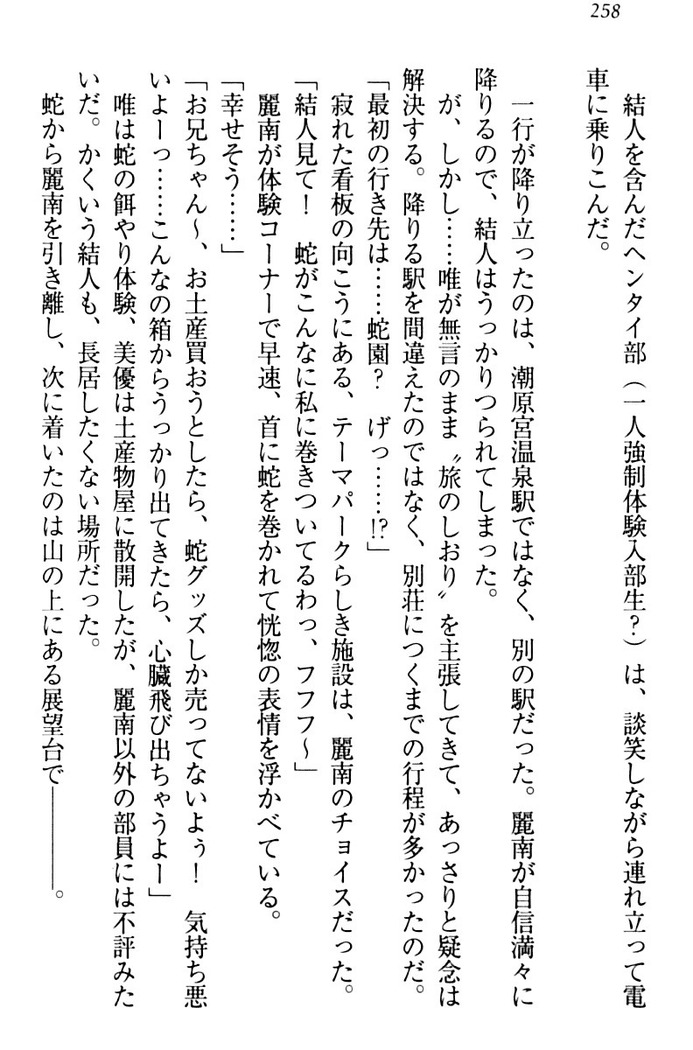 258
結人を含んだヘンタイ部（一人強制体験入部生？）は、談笑しながら連れ立って電
車に乗りこんだ。
一行が降り立ったのは、潮原宮温泉駅ではなく、別の駅だった。麗南が自信満々に
降りるので、結人はうっかりつられてしまった。
が、しかし……唯が無言のまま〝旅のしおり〟を主張してきて、あっさりと疑念は
解決する。降りる駅を間違えたのではなく、別荘につくまでの行程が多かったのだ。
「最初の行き先は……蛇園？　げっ……!?」
寂れた看板の向こうにある、テーマパークらしき施設は、麗南のチョイスだった。
「結人見て！　蛇がこんなに私に巻きついてるわっ、フフフ～」
麗南が体験コーナーで早速、首に蛇を巻かれて恍惚の表情を浮かべている。
「幸せそう……」
「お兄ちゃん～、お土産買おうとしたら、蛇グッズしか売ってないよぅ！　気持ち悪
いよーっ……こんなの箱からうっかり出てきたら、心臓飛び出ちゃうよー」
唯は蛇の餌やり体験、美優は土産物屋に散開したが、麗南以外の部員には不評みた
いだ。かくいう結人も、長居したくない場所だった。
蛇から麗南を引き離し、次に着いたのは山の上にある展望台で――――。